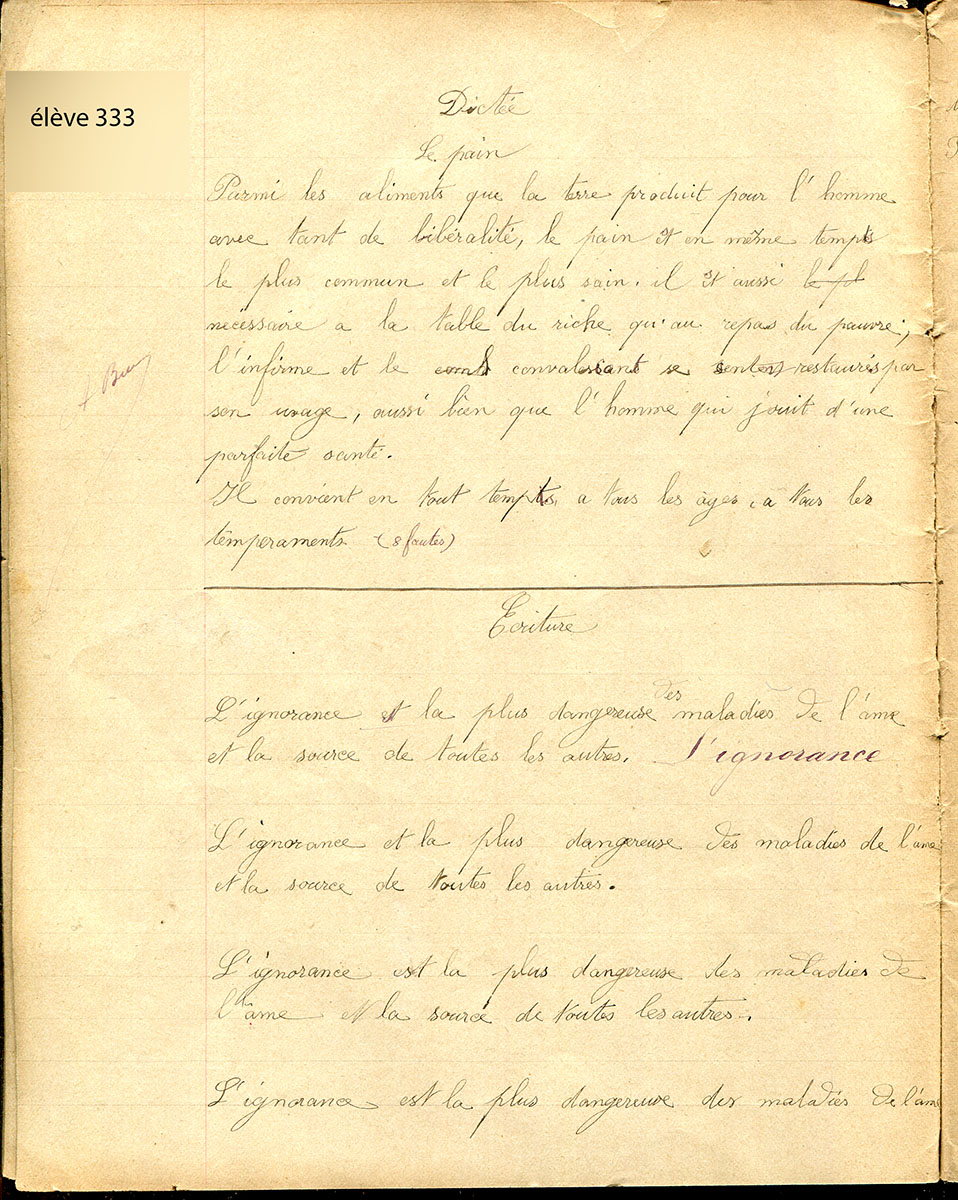 élève 333
Dictée
Le pain
Parmi les aliments que la terre produit pour l'homme
avec tant de libéralité, le pain est en même temps
le plus commun et le plus sain. il est aussi le pl
necessaire a la table du riche qu'au repas du pauvre;
l'infirme et le convalessant se sentent restaurés par
son usage, aussi bien que l'homme qui jouit d'une
parfaite santé.
Il convient en tout temps, a tous les âges, a tous les
témperaments (8 fautes)
Ecriture
des
L'ignorance et la plus dangereuse maladies de l'âme
et la source de toutes les autres. L'ignorance
L'ignorance et la plus dangereuse des maladies de l'âme
et la source de toutes les autres.
L'ignorance est la plus dangereuse des maladies de
l'âme et la source de toutes les autres.
L'ignorance est la plus dangereuse des maladies de l'âme